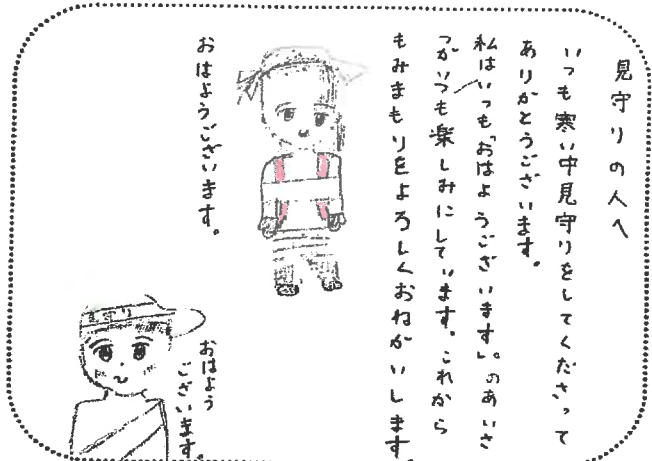 見守りの人へ
いつも寒い中見守りをしてくださって
ありがとうございます。
私はいつも「おはようございます」。のあいさ
つがいつも楽しみにしています。これから
もみまもりをよろしくおねがいします。
おはようございます。
おはよう
ございます。
見守り